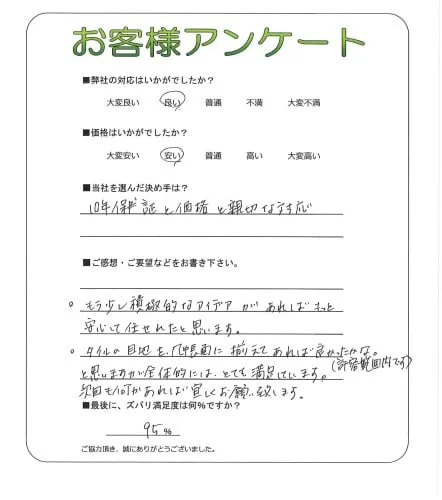 お客様アンケート
■弊社の対応はいかがでしたか?
大変良い 良い 普通 不満 大変不満
■価格はいかがでしたか?
大変安い 安い 普通 高い 大変高い
■当社を選んだ決め手は?
10年保証と価格と親切な対応
■ご感想・ご要望などをお書き下さい。
○ もう少し積極的なアイデアがあればもっと
安心して任せれたと思います。
○ タイルの目地を、壁面に揃えてあれば良かったかな。
と思いますが全体的には、とても満足しています。(許容範囲内です)
次回も何かあれば宜しくお願い致します。
■最後に、ズバリ満足度は何%ですか?
95%
ご協力頂き、誠にありがとうございました。